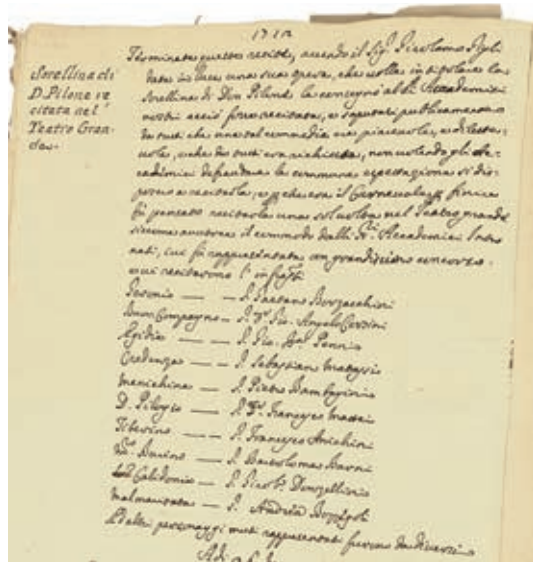 1712
Sorellina di
D. Pilone re
citata nel
Teatro Gran
de.
Terminate queste recite, avendo il Sig. Girolamo Gigli
data in luce una sua opera, che volle intitolare la
Sorellina di Don Pilone la consegnò alli SS. Accademici
nostri acciò fosse recitata, e saputosi publicamente
da tutti che una tal commedia era piacevole, e dilette-
vole, e che da tutti era richiesta, non volendo gli Ac-
cademici defraudare la commune espettazione si dis-
posero a recitarla, e perche era il Carnevale finire
fù pensato recitarla una sol volta nel Teatro grande
il commodo dalli SS. Accademici Intro
nati, ivi fù rappresentata con grandissimo concorso.
e vi recitarono l' infra
Geronio — — S. Gaetano Borzacchini
Buon Compagno — S. Gio. Angelo Corsini
Egidia — — S. Gio. Pennis
Credenza — — S. Sebastiano
Menichina — S. Pietro Bambagini
D. Pilogio — S. Francesco Mattei
Tiberino — — S. Francesco Anichini
Burino — S. Bartolomeo Barni
Calidonia — S. Giacob. Donzellini
Malmaritata — S. Andrea
E d'altri personaggi muti rappresentati furono da diversi
Adi